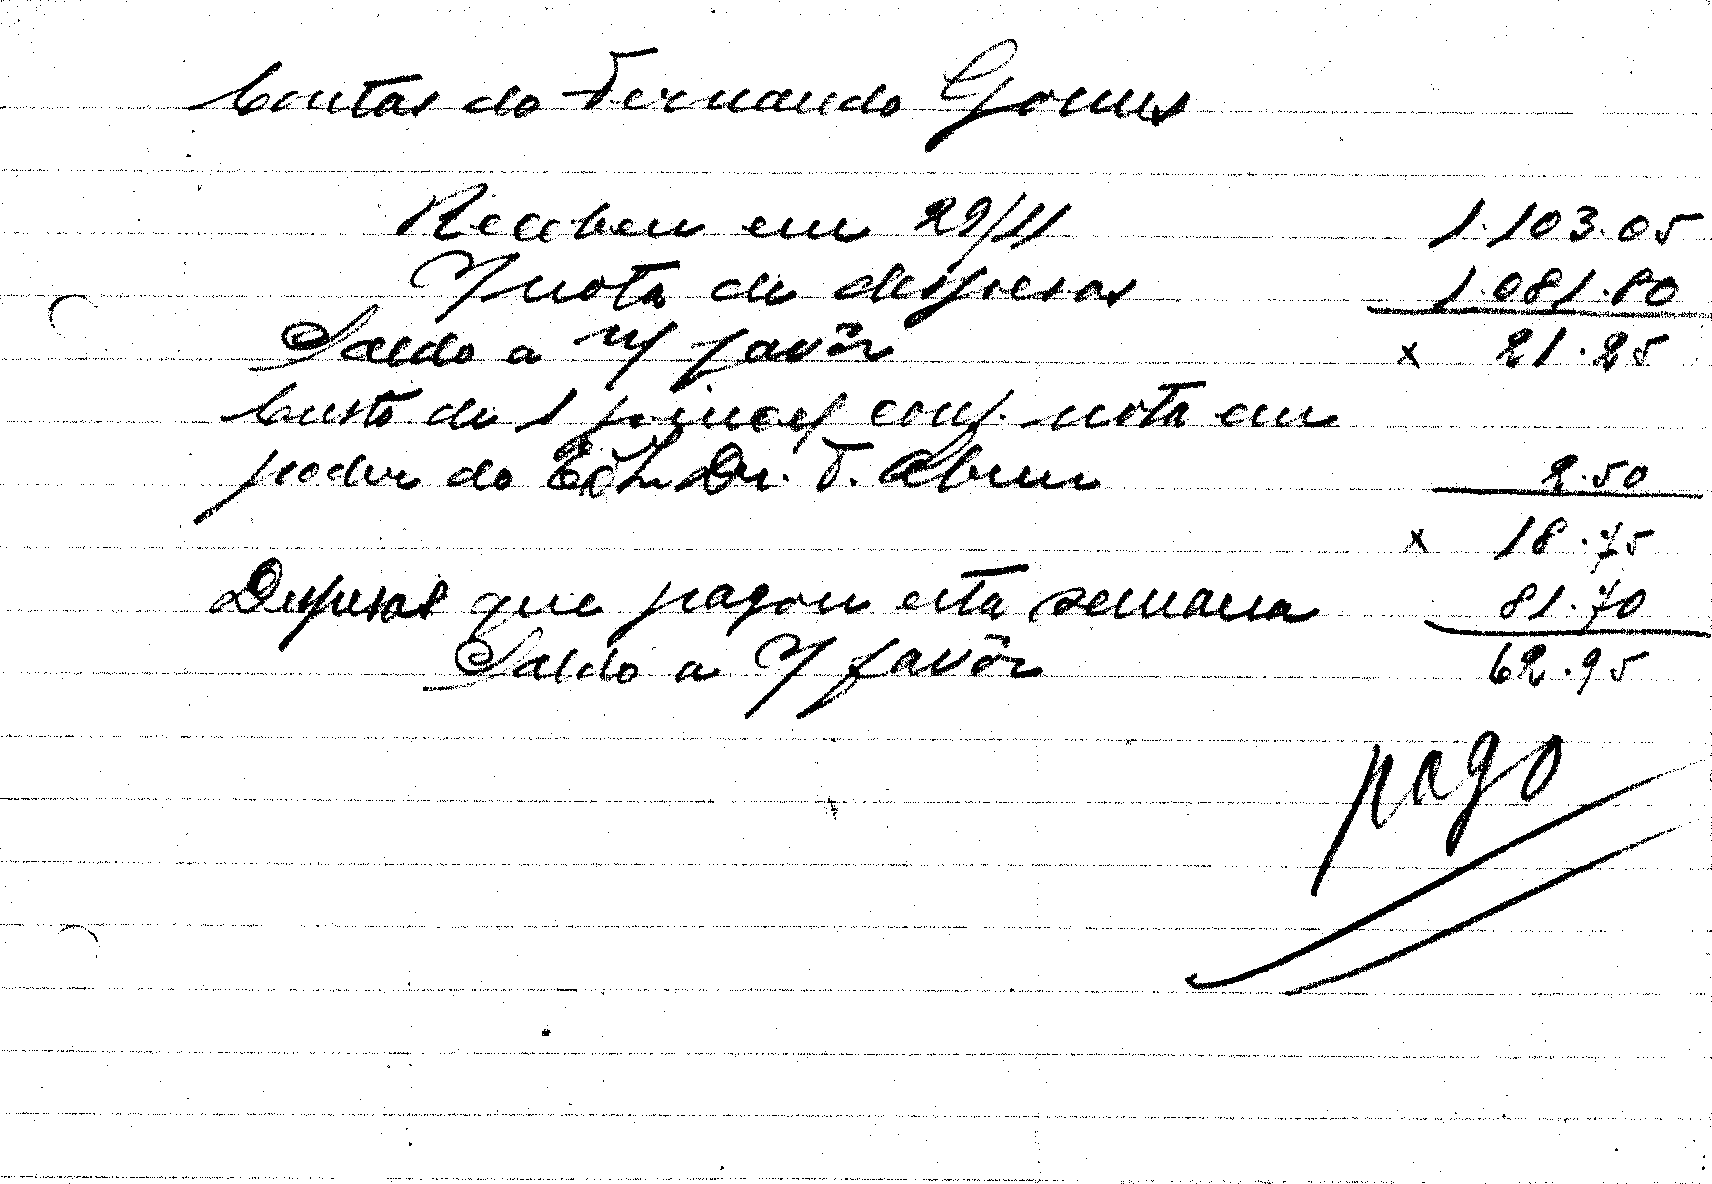 Contas do Fernando Gomes
Recebeu em 29/11 1.103.05
S/ nota de despesas 1.081.80
Saldo a n/ favôr x 21.25
Custo de 1 pincel conf. nota em
poder do Exmo. Dr. T. Abreu 2.50
x 18.75
Despesas que pagou esta semana 81.70
Saldo a S/ favôr 62.95
pago